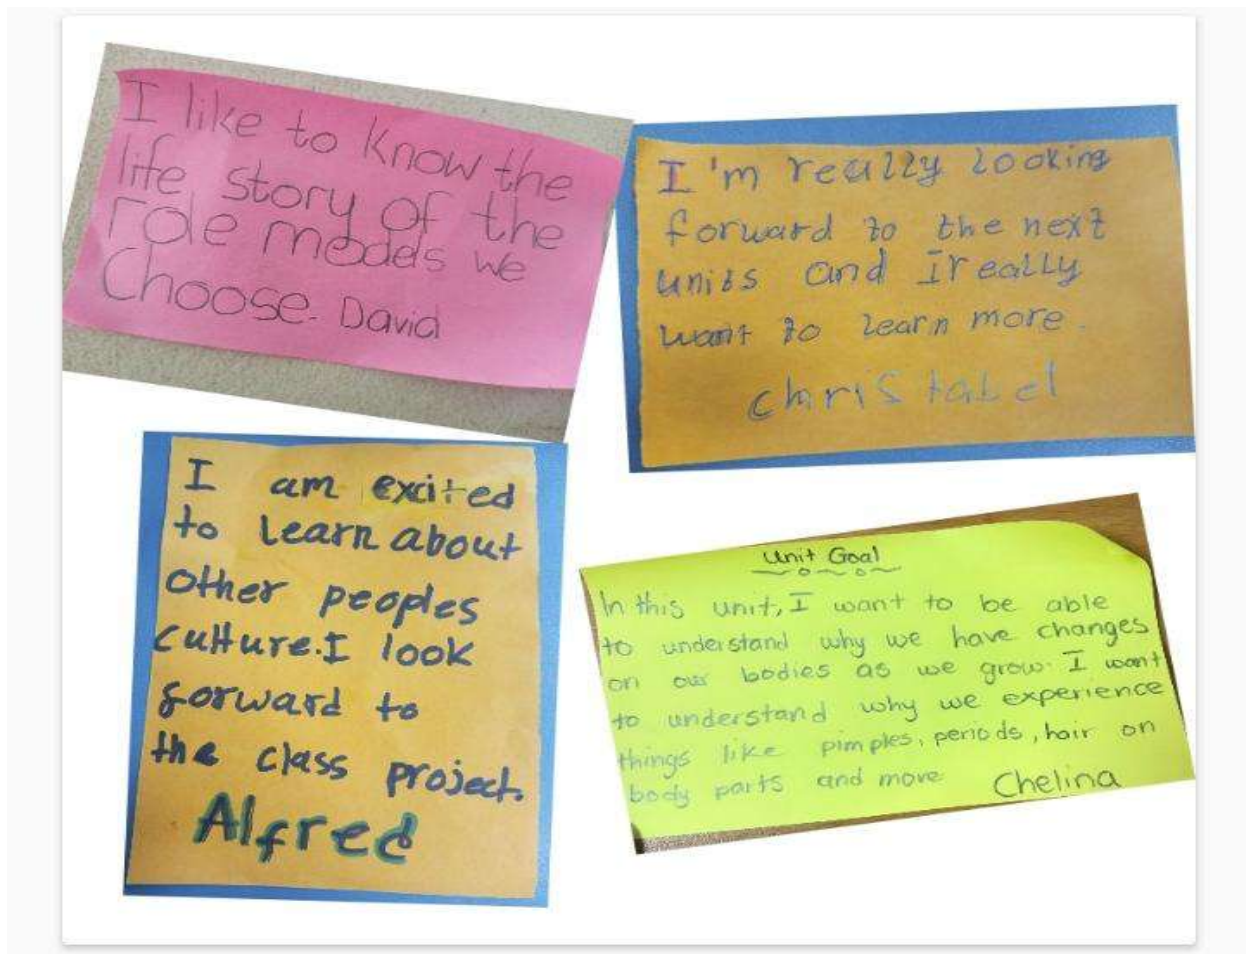 I like to know the
life story of the
role models we
Choose. David
I'm really looking
forward to the next
units and I really
want to learn more.
christabel
I am excited
to learn about
other peoples
culture. I look
forward to
the class project.
Alfred
Unit Goal
In this unit, I want to be able
to understand why we have changes
on our bodies as we grow. I want
to understand why we experience
things like pimples, periods, hair on
body parts and more Chelina